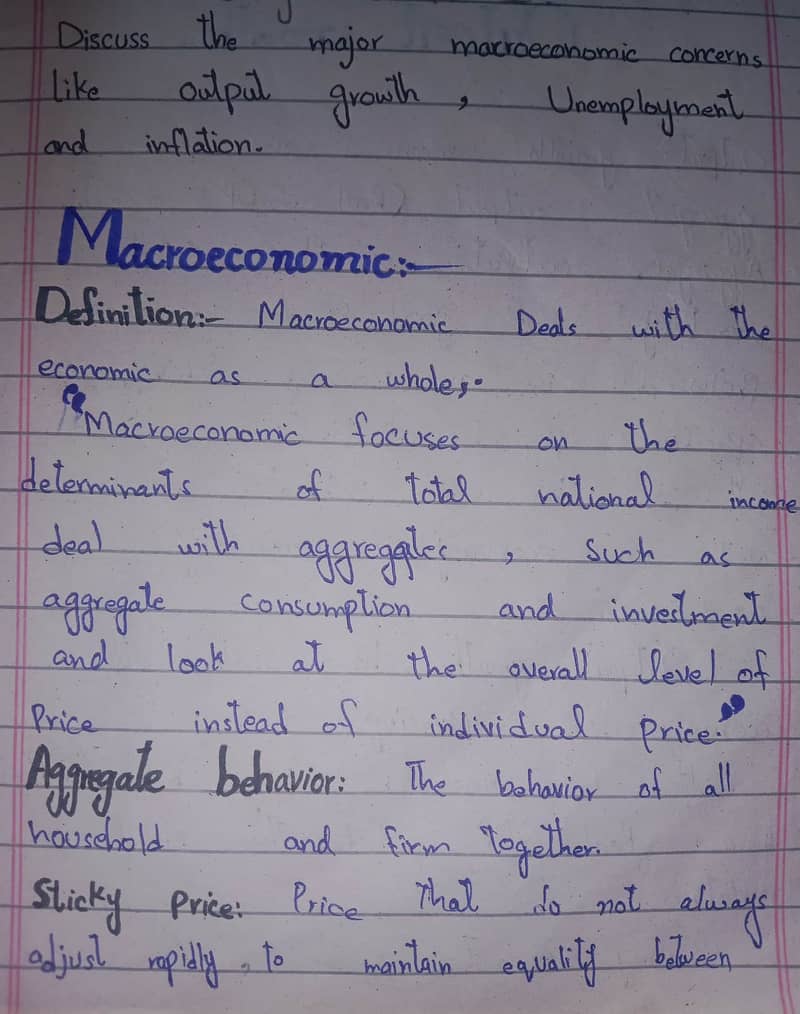 Discuss the major macroeconomic concerns
like output growth , Unemployment
and inflation.
Macroeconomic:-
Definition:- Macroeconomic Deals with the
economic as a whole,-
"Macroeconomic focuses on the
determinants of total national income
deal with aggreggates , such as
aggregate consumption and investment
and look at the overall level of
Price instead of individual price."
Aggregate behavior: The behavior of all
household and firm together.
Sticky Price: Price That do not always
adjust rapidly, to maintain equality between